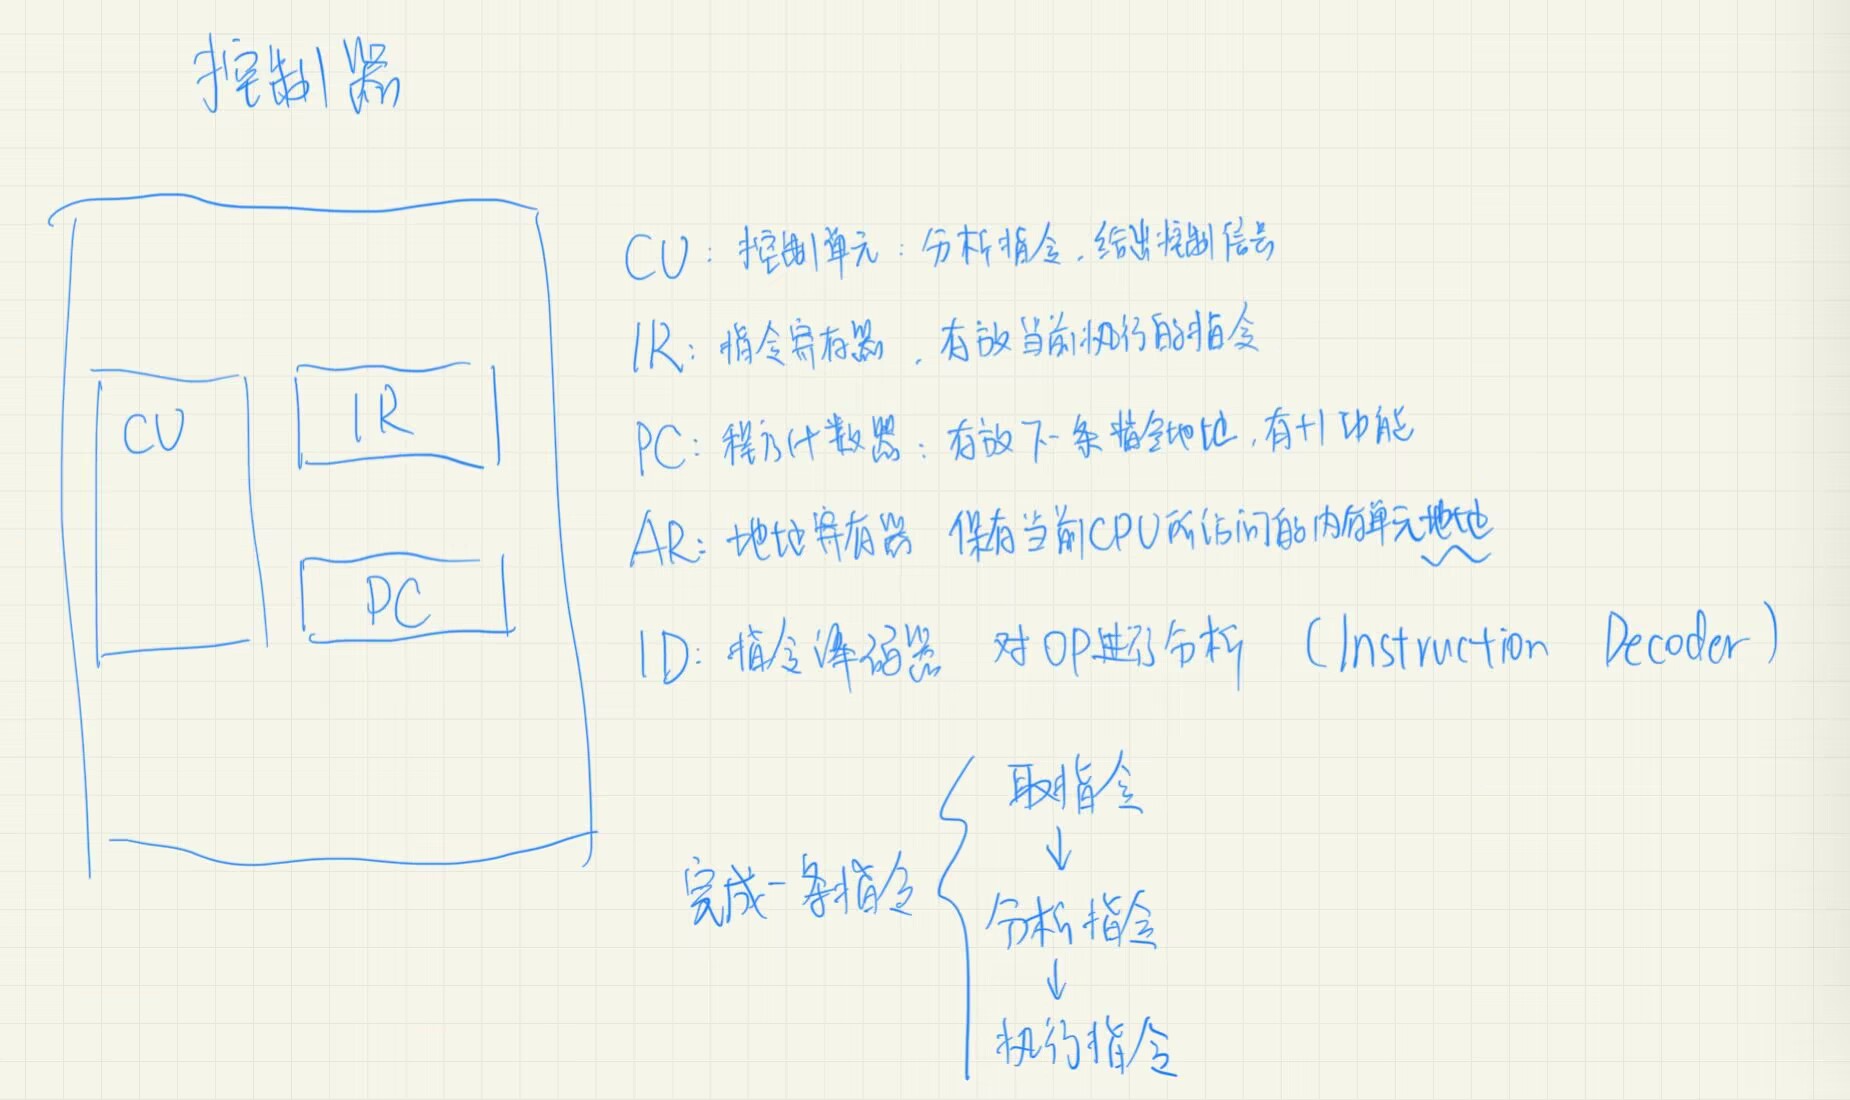 控制器
CU
IR
PC
CU：控制单元：分析指令，给出控制信号
IR：指令寄存器，存放当前执行的指令
PC：程序计数器：存放下一条指令地址，有+1功能
AR：地址寄存器 保存当前CPU所访问的内存单元地址
ID：指令译码器 对OP进行分析 (Instruction Decoder)
完成一条指令
取指令
↓
分析指令
↓
执行指令